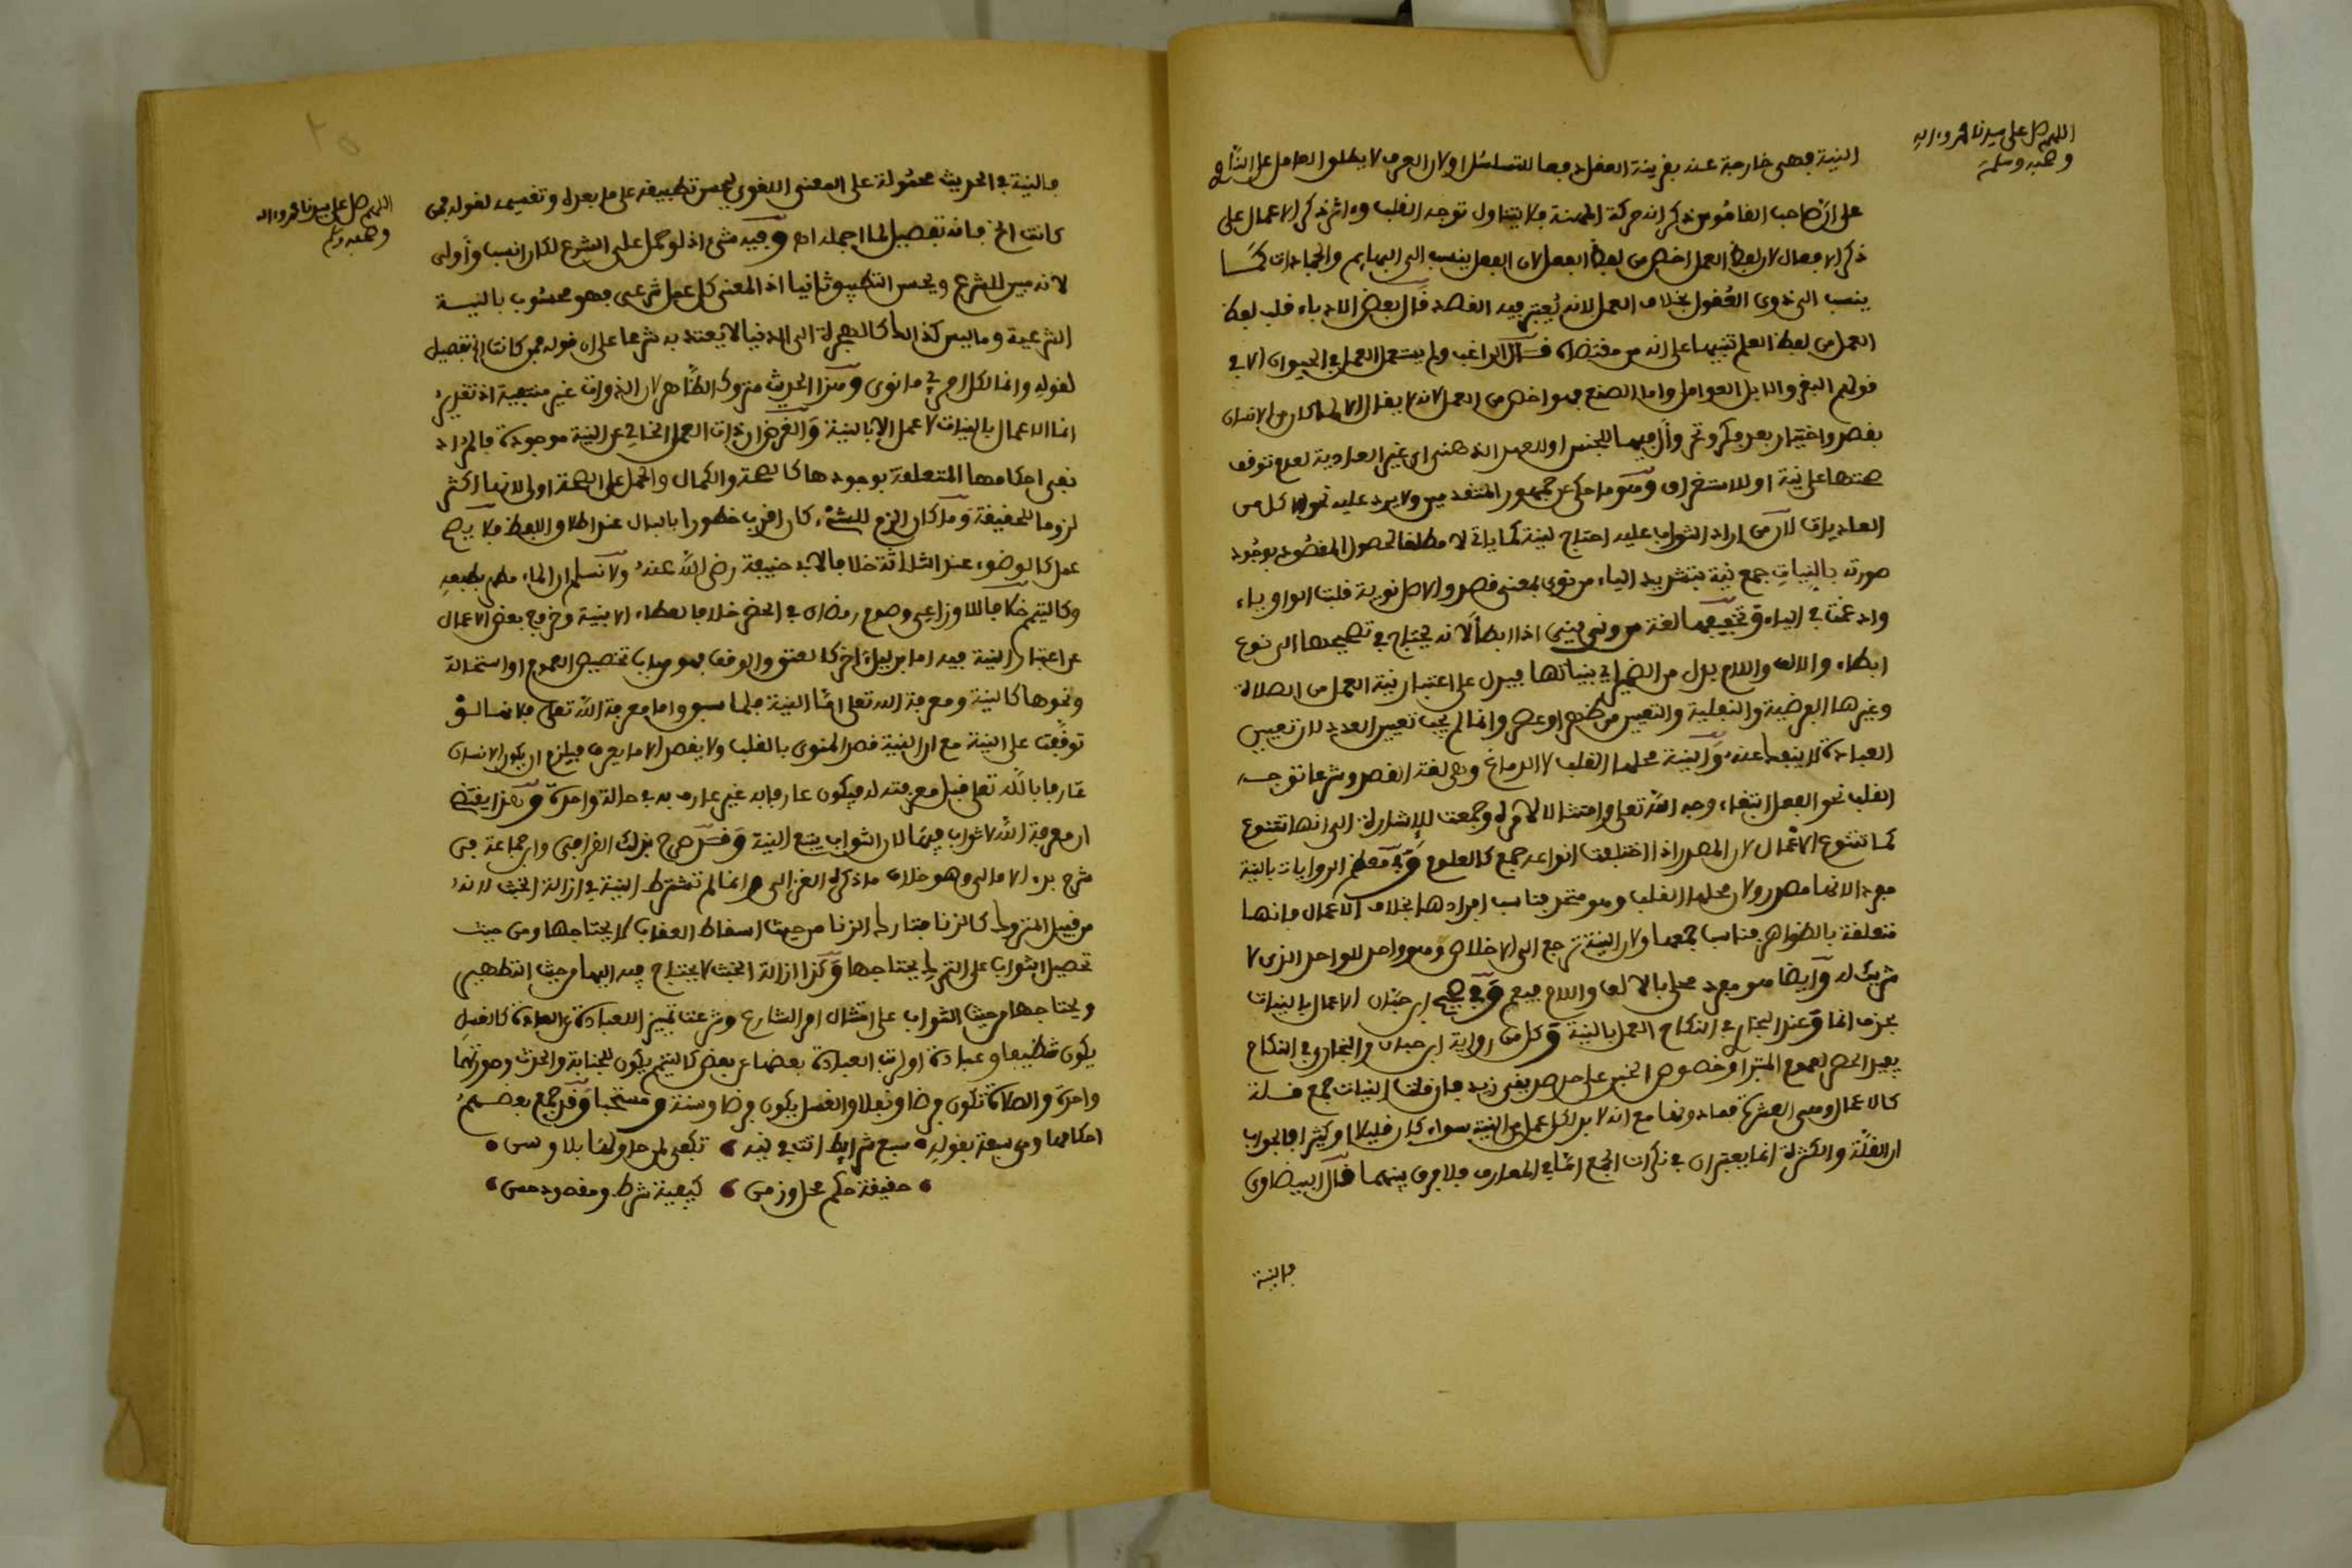 اللهم صل على سيدنا محمد واله
وصحبه وسلم
النية فهي خارجة عنه بقرينة العقل دفعا للتسلسل او لان العرف لا يطلق العامل على الناوي
على ان صاحب القاموس ذكر انه حركة المهنة فلا يتناول توجه القلب وءاثر ذكر الاعمال على
ذكر الافعال لان لفظ العمل اخص من لفظ الفعل لان الفعل ينسب الى البهايم والجمادات كما
ينسب الى ذوي العقول بخلاف العمل لانه يعتبر فيه القصد قال بعض الادباء قلب لفظ
العمل من لفظ العلم تنبيها على انه من مقتضاه قال الراغب ولم يستعمل العمل في الحيوان الا في
قولهم البقر والابل العوامل واما الصنع فهو اخص من العمل لانه لا يقال الا لما كان من الانسان
بقصد واختيار بعد فكر وتحر وال فيهما للجنس او للعهد الذهني اي غير العادية لعدم توقف
صحتها على نية او للاستغراق وهو ما حكي عن جمهور المتقدمين ولا يرد عليه نحو الاكل من
العاديات لان من اراد الثواب عليه احتاج لنية كما ياتي لا مطلقا لحصول المقصود بوجود
صورته بالنيات جمع نية بتشديد الياء من نوى بمعنى قصد والاصل نوية قلبت الواو ياء
وادغمت في الياء وتخفيفها لغة من ونى يني اذا ابطأ لانه يحتاج في تصحيحها الى نوع
ابطاء والالف واللام بدل من الضمير اي بنياتها فيدل على اعتبار نية العمل من الصلاة
وغيرها الفرضية والنفلية والتعيين من ظهر او عصر وانما لم يجب تعيين العدد لان تعيين
العبادة لا ينفك عنه والنية محلها القلب لا الدماغ وهي لغة القصد وشرعا توجه
القلب نحو الفعل ابتغاء وجه الله تعلى وامتثالا لامره وجمعت للاشارة الى انها تتنوع
كما تتنوع الاعمال لان المصدر اذا اختلفت انواعه جمع كالعلوم وفي معظم الروايات بالنية
مفردا لانها مصدر ولان محلها القلب وهو متحد فناسب افرادها بخلاف الاعمال فانها
متعلقة بالظواهر فناسب جمعها ولان النية ترجع الى الاخلاص وهو واحد للواحد الذي لا
شريك له وايضا هو مفرد محلى بالالف واللام فيعم وفي صحيح ابن حبان الاعمال بالنيات
بحذف انما وعند البخاري في النكاح العمل بالنية وكل من رواية ابن حبان والبخاري في النكاح
يفيد الحصر لعموم المبتدا وخصوص الخبر على حد صديقي زيد فان قلت النيات جمع قلة
كالاعمال وهي العشرة فما دونها مع انه لا بد لكل عمل من النية سواء كان قليلا او كثيرا فالجواب
ان القلة والكثرة انما يعتبران في نكرات الجمع اما في المعارف فلا فرق بينهما قال البيضاوي
فالنية
اللهم صل على سيدنا محمد واله
وصحبه وسلم
فالنية في الحديث محمولة على المعنى اللغوي ليحسن تطبيقه على ما بعده وتقسيمه لقوله فمن
كانت الخ فانه تفصيل لما اجمله اه وفيه شيء اذ لو حمل على الشرع لكان انسب وأولى
لانه مبين للشرع ويحسن التطبيق ثانيا اذ المعنى كل عمل شرعي فهو محسوب بالنية
الشرعية وما ليس كذالك كالهجرة الى الدنيا لا يعتد به شرعا على ان قوله فمن كانت الخ تفصيل
لقوله وانما لكل امرئ ما نوى وهذا الحديث متروك الظاهر لان الذوات غير منتفية اذ تقديره
انما الاعمال بالنيات لا عمل الا بالنية والغرض ان ذات العمل الخالي عن النية موجودة فالمراد
نفي احكامها المتعلقة بوجودها كالصحة والكمال والحمل على الصحة اولى لانها اكثر
لزوما للحقيقة وما كان الزم للشيء كان اقرب خطورا بالبال عند اطلاق اللفظ فلا يصح
عمل كالوضوء عند الثلاثة خلافا لابي حنيفة رضي الله عنه ولا نسلم ان الماء مطهر بطبعه
وكالتيمم خلافا للاوزاعي وصوم رمضان في الحضر خلافا لعطاء الا بنية وخروج بعض الاعمال
عن اعتبار النية فيه اما بدليل ءاخر كالعتق والوقف فهو من باب تخصيص العموم او استحالة
ونحوها كالنية ومعرفة الله تعلى اما النية فلما سبق واما معرفة الله تعلى فلانها لو
توقفت على النية مع ان النية قصد المنوي بالقلب ولا يقصد الا ما يعرف فيلزم ان يكون الانسان
عارفا بالله تعلى قبل معرفته له فيكون عارفا به غير عارف به في حالة واحدة وهذا يقتضي
ان معرفة الله لا ثواب فيها لان الثواب يتبع النية وقد صرح بذلك القرافي وابن جماعة في
شرح بدء الامالي وهو خلاف ما ذكره الغزالي وانما لم تشترط النية في ازالة الخبث لانه
من قبيل التروك كالزنا فتارك الزنا من حيث اسقاط العقاب لا يحتاجها ومن حيث
تحصيل الثواب على الترك يحتاجها وكذا ازالة الخبث لا يحتاج فيه اليها من حيث التطهير
ويحتاجها من حيث الثواب على امتثال امر الشارع وشرعت تمييزا للعبادة عن العادة كالغسل
يكون تنظيفا وعبادة او لرتب العبادة بعضها عن بعض كالتيمم يكون للجنابة والحدث وصورتهما
واحدة والصلاة تكون فرضا ونفلا والغسل يكون فرضا وسنة ومستحبا وقد جمع بعضهم
احكامها وهي سبعة بقوله سبع شرايط اتت في نية تكفي لمن حاولها بلا وسن
حقيقة حكم محل وزمن كيفية شرط ومقصود حسن